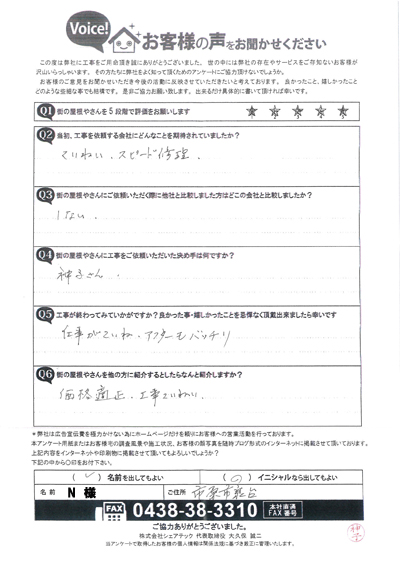 Voice!
お客様の声をお聞かせください
この度は弊社に工事をご用命頂き誠にありがとうございました。世の中には弊社の存在やサービスをご存知ないお客様が
沢山いらっしゃいます。その方たちに弊社をよく知って頂くためのアンケートにご協力頂けないでしょうか。
お客様のご意見をお聞かせいただき今後の活動に反映させていただきたいと考えております。良かったこと、嬉しかったこと
どのような些細な事でも結構です。是非ご協力お願い致します。出来るだけ具体的に書いて頂ければ幸いです。
Q1 街の屋根やさんを5段階で評価をお願いします ★ ★ ★ ★ ★
Q2 当初、工事を依頼する会社にどんなことを期待されていましたか?
ていねい、スピード修理、
Q3 街の屋根やさんにご依頼いただく際に他社と比較しました方はどこの会社と比較しましたか?
しない、
Q4 街の屋根やさんに工事をご依頼いただいた決め手は何ですか?
神子さん、
Q5 工事が終わってみていかがですか?良かった事・嬉しかったことを忌憚なく頂戴出来ましたら幸いです
仕事がていね、アフターもバッチリ
Q6 街の屋根やさんを他の方に紹介するとしたらなんと紹介しますか?
価格適正、工事ていねい、
*弊社は広告宣伝費を極力かけない為にホームページだけを頼りにお客様への営業活動を行っております。
本アンケート用紙またはお客様宅の調査風景や施工状況、お客様の顔写真を随時ブログ形式のインターネットに掲載させて頂いております。
上記内容をインターネットや印刷物に掲載させて頂いてもよろしいでしょうか?
下記の中から〇印をお付下さい。
( ) 名前を出してもよい ( ) イニシャルなら出してもよい
名前 N 様 ご住所 市原市
FAX 0438-38-3310 本社直通 FAX番号
ご協力ありがとうございました。
株式会社シェアテック 代表取締役 大久保 誠二
当アンケートで取得したお客様の個人情報は関係法規に基づき厳正に管理いたします。
神子